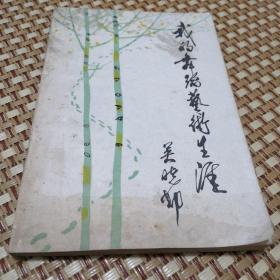 我的舞蹈藝術生涯
吴晓邦